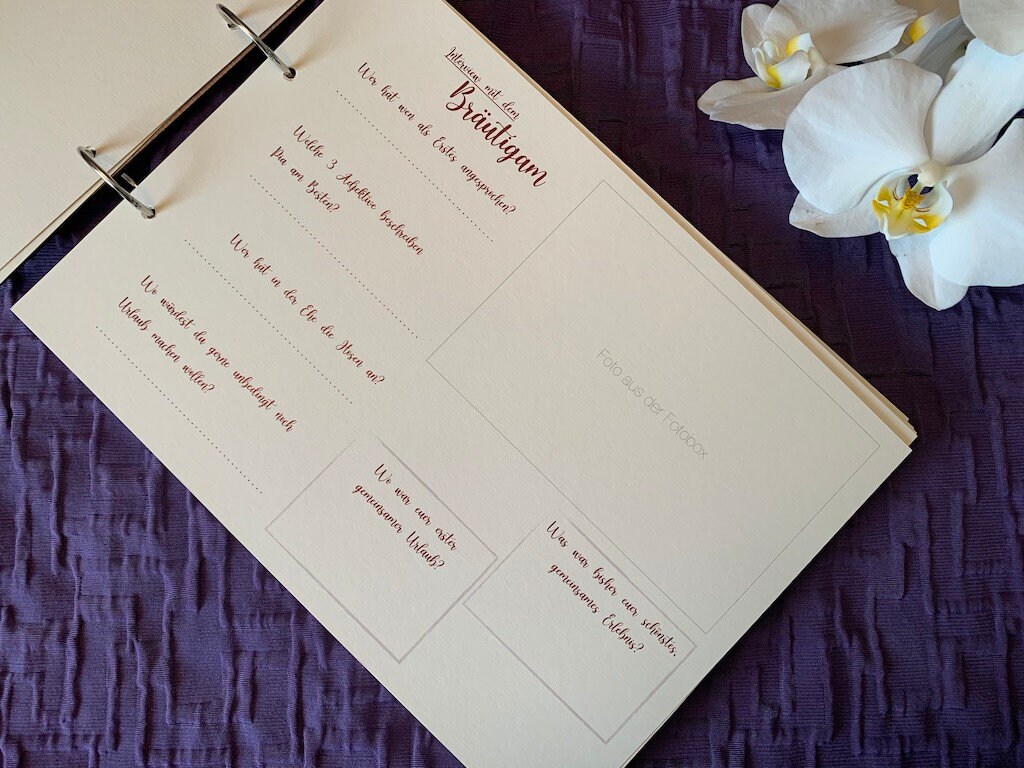 Interview mit dem
Bräutigam
Wer hat wen als Erstes angesprochen?
Welche 3 Adjektive beschreiben
Pia am Besten?
Wer hat in der Ehe die Hosen an?
Wo würdest du gerne unbedingt noch
Urlaub machen wollen?
Foto aus der Fotobox
Wo war euer erster
gemeinsamer Urlaub?
Was war bisher euer schönstes,
gemeinsames Erlebnis?